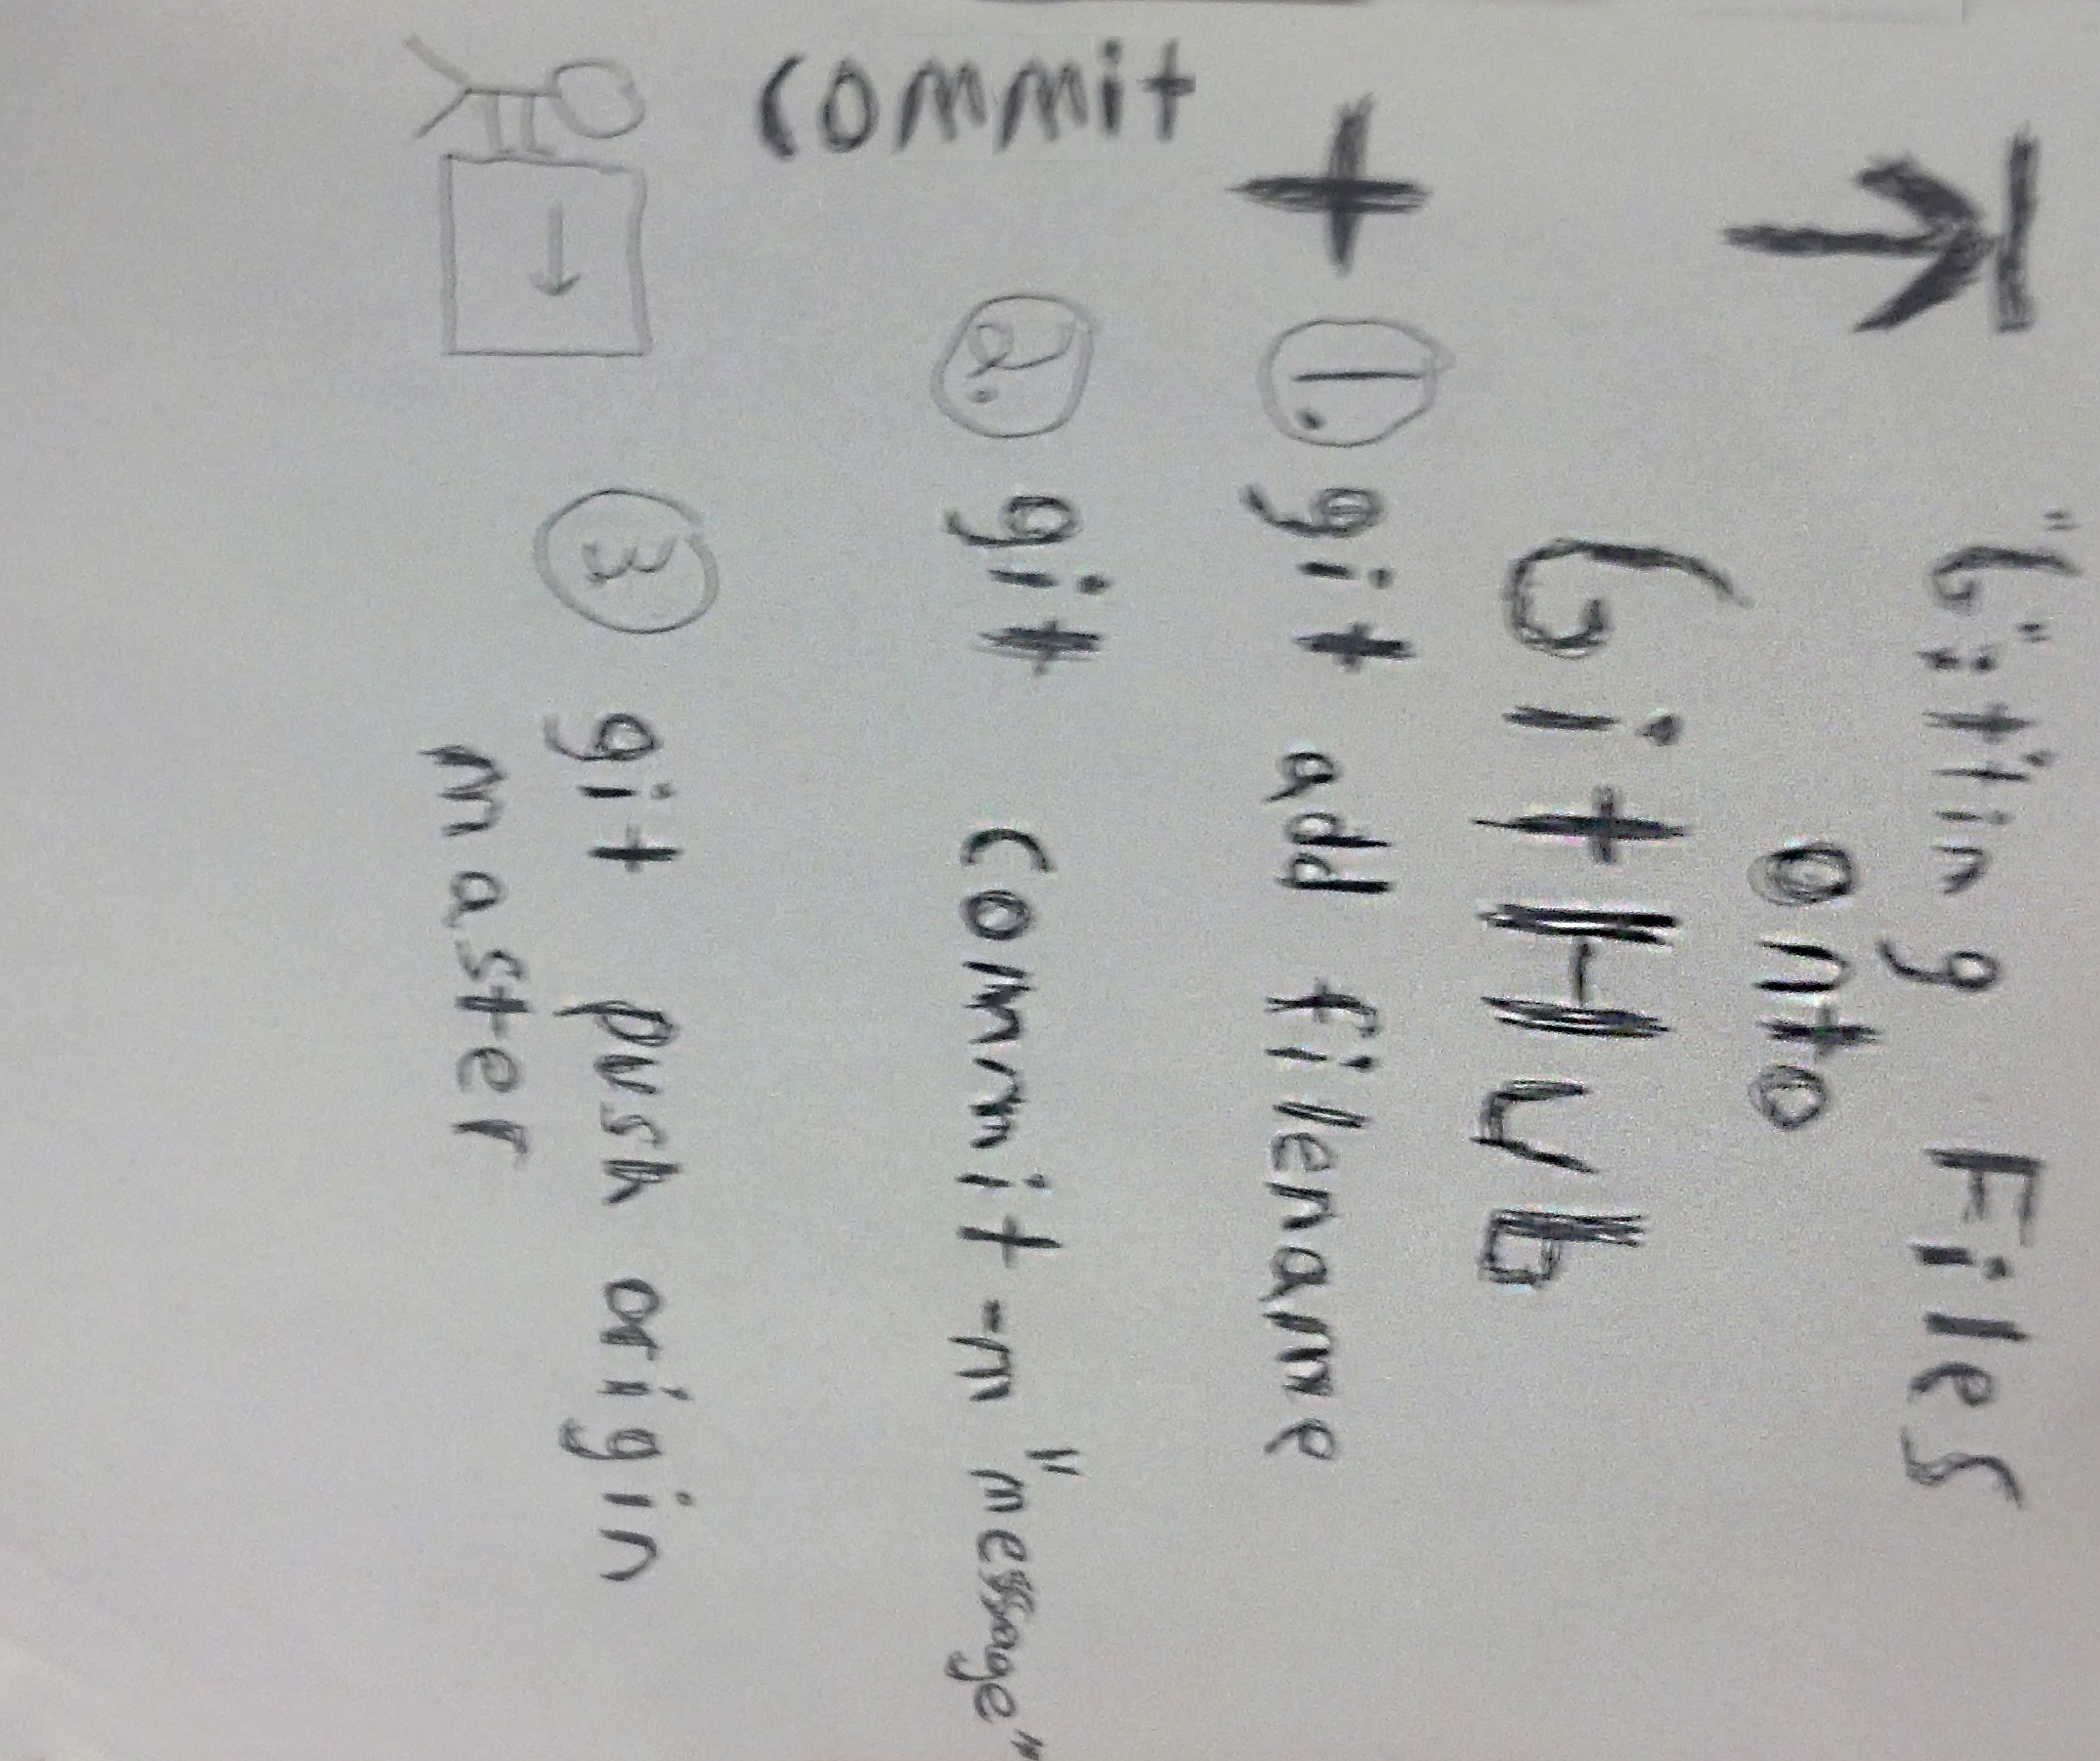 "G"it"ting Files
onto
GitHub
1. git add filename
commit
2. git commit -m "message"
3 git push origin
master